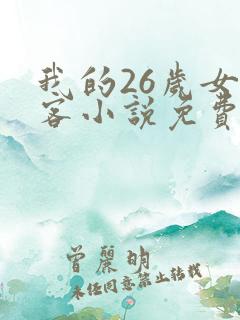 我的26歲女
客小說免費
曾麗明
未任同意禁止转载